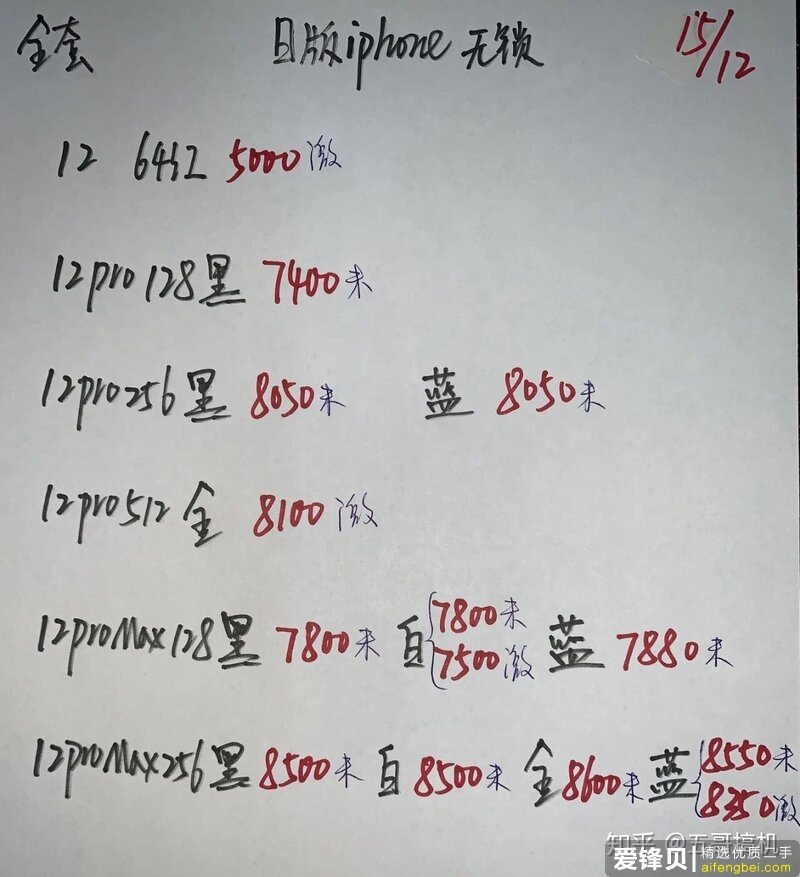 全套 日版iphone 无锁 15/12
12 64红 5000激
12pro 128黑 7400未
12pro256黑 8050未 蓝 8050未
12pro512金 8100激
12proMax128黑 7800未 白 7800未 7500激 蓝 7880未
12proMax256黑 8500未 白 8500未 金 8600未 蓝 8550未 8350激
知乎 @五哥搞机
爱锋贝 精选优质二手
aifengbei.com